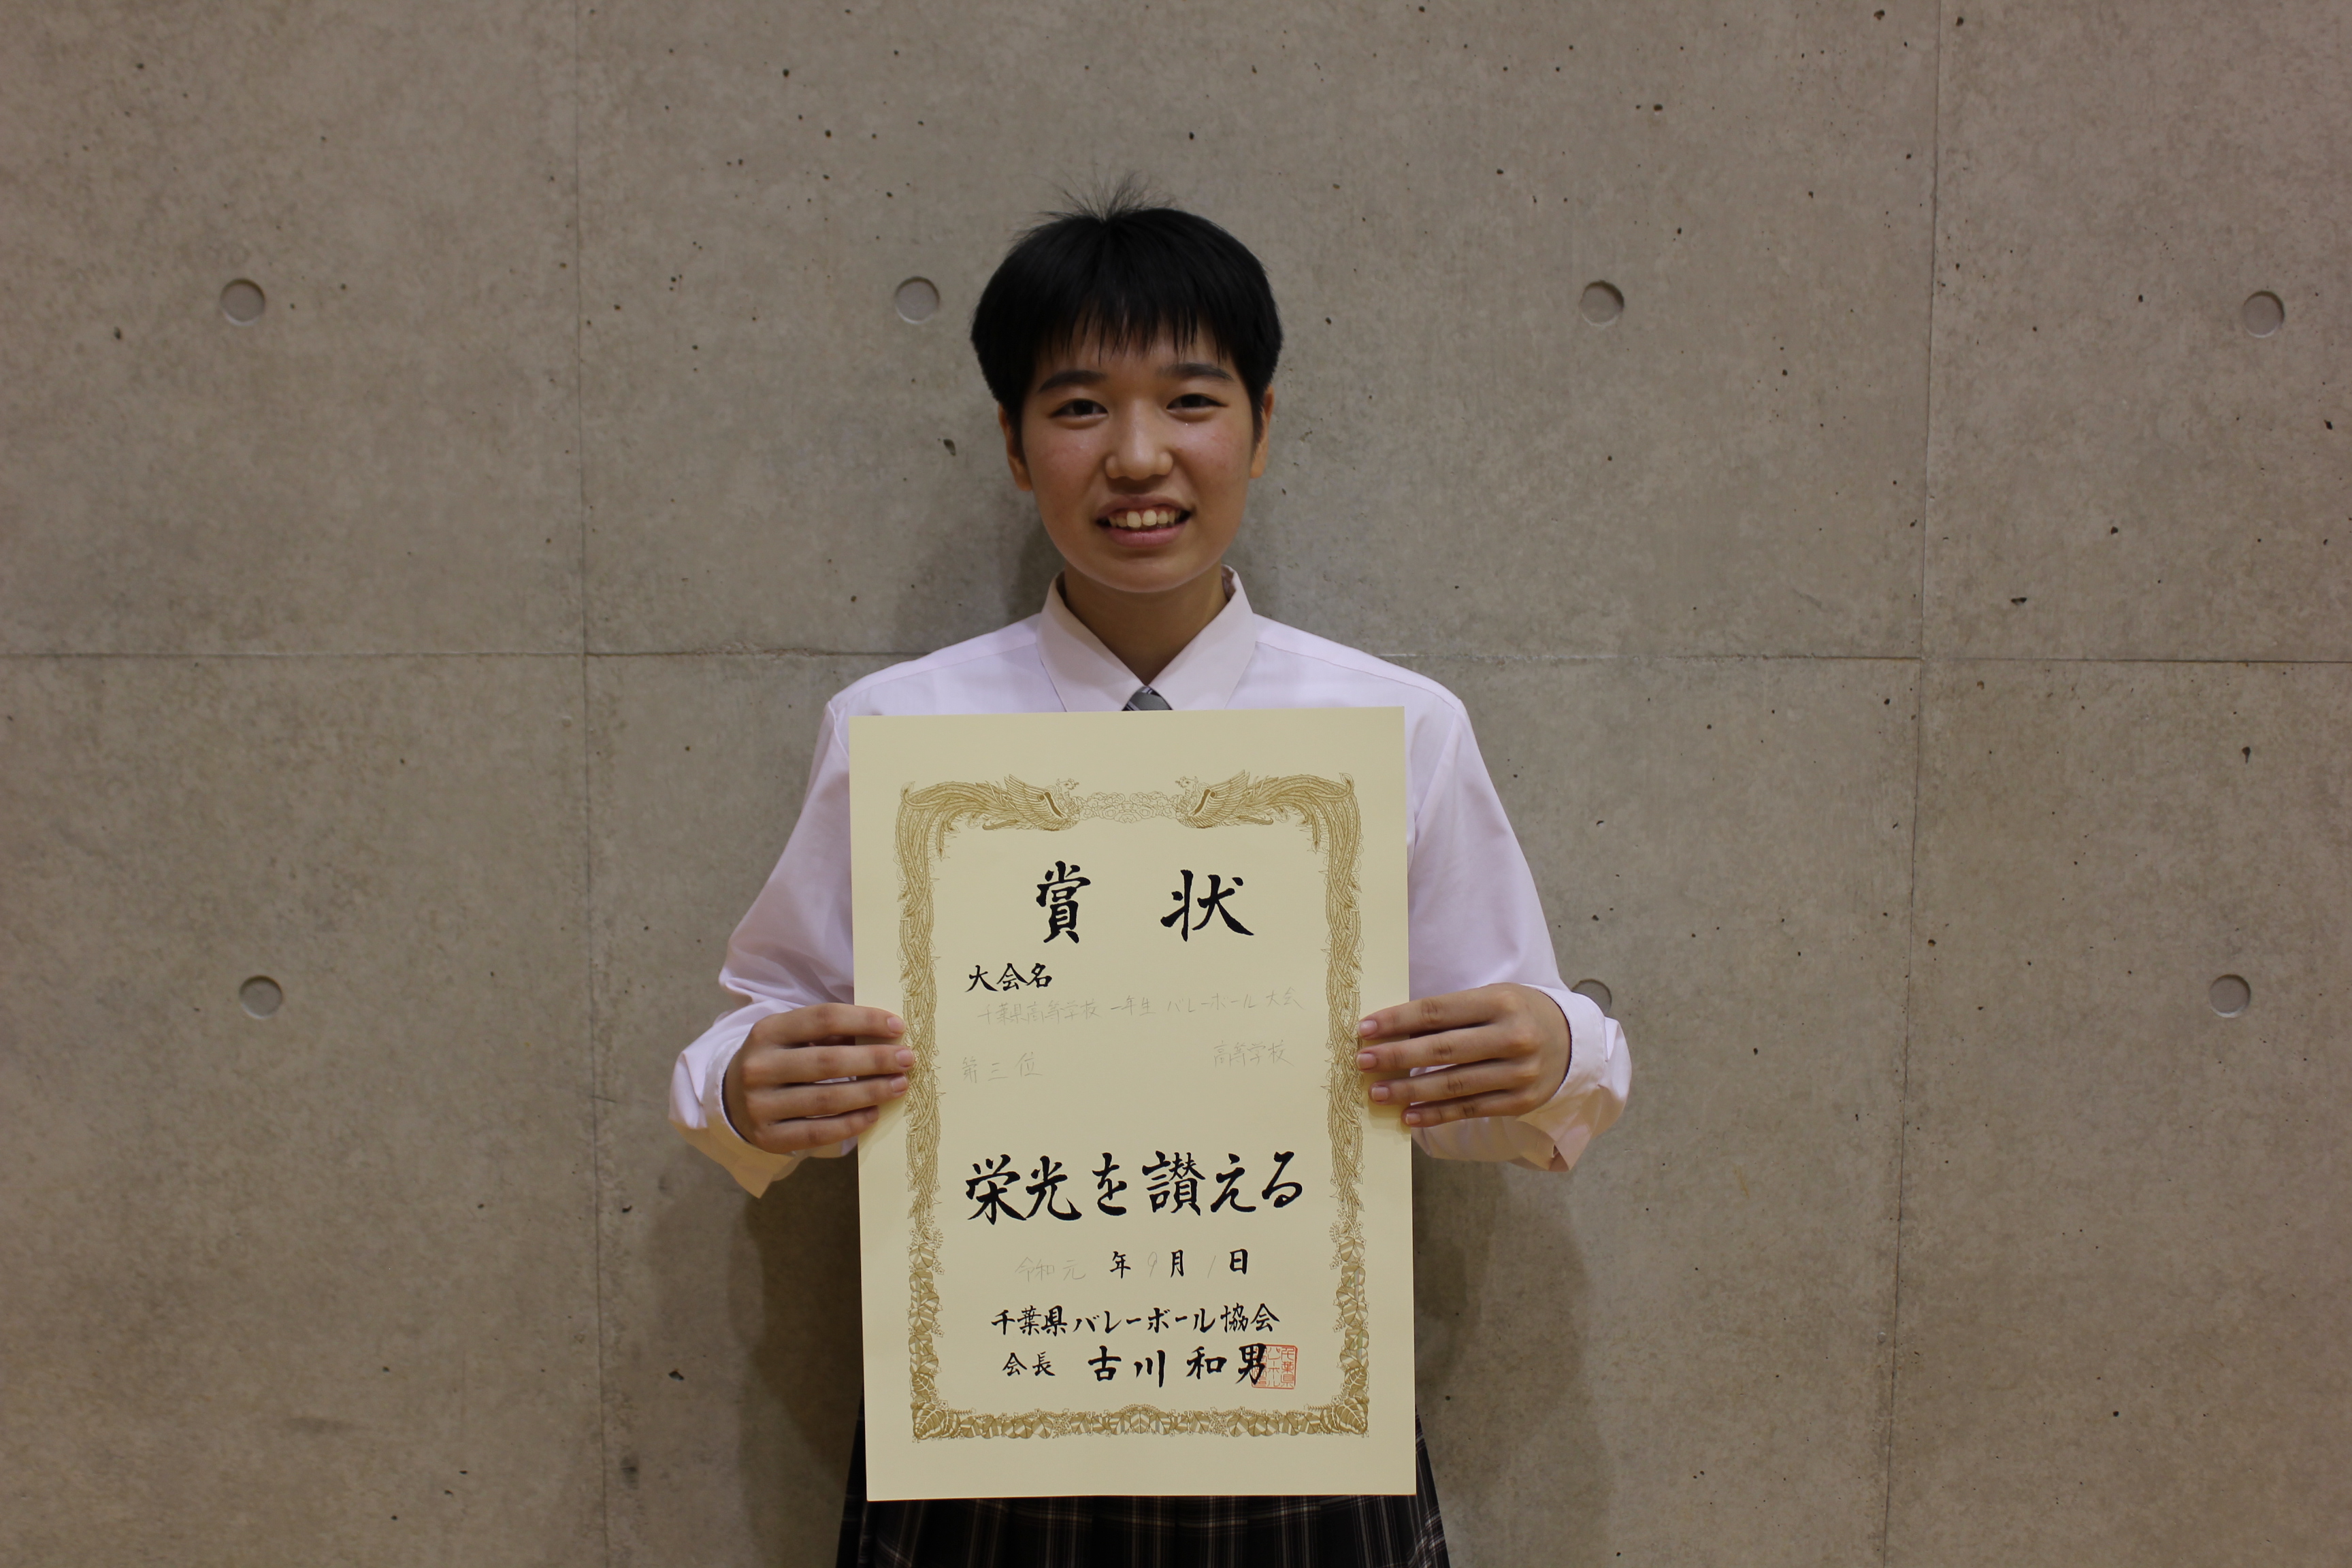 賞状
大会名
千葉県高等学校一年生バレーボール大会
第三位 高等学校
栄光を讃える
令和元年9月1日
千葉県バレーボール協会
会長 古川和男